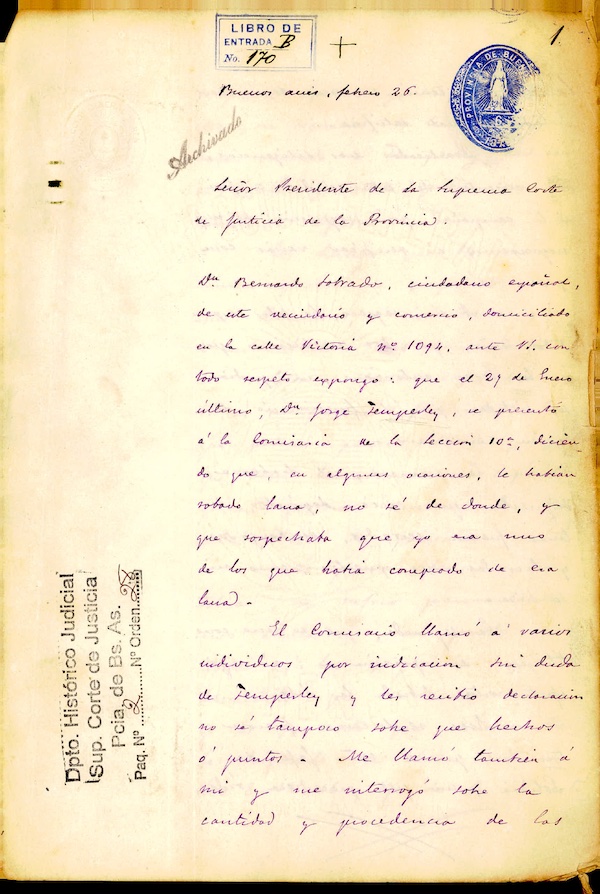 LIBRO DE
ENTRADA B
No. 170
1.
PROVINCIA DE BUEN
Buenos aires, febrero 26.
Archivado
Señor Presidente de la Suprema Corte
de Justicia de la Provincia.
Dn Bernardo Sobrado, ciudadano español,
de este vecindario y comercio, domiciliado
en la calle Victoria nº 1094, ante V. con
todo respeto expongo: que el 27 de Enero
último, Dn Jorge Temperley, se presentó
á la Comisaria de la Seccion 10a, dicien
do que, en algunas ocasiones, le habian
robado lana, no sé de donde, y
que sospechaba que yo era uno
de los que habia comprado de esa
lana.
El Comisario llamó á varios
individuos por indicacion sin duda
de Temperley y les recibió declaracion
no sé tampoco sobre que hechos
ó puntos. Me llamó tambien á
mi y me interrogó sobre la
cantidad y procedencia de las
Dpto. Histórico Judicial
Sup. Corte de Justicia
Pcia. de Bs. As.
Paq. Nº 2 Nº Orden